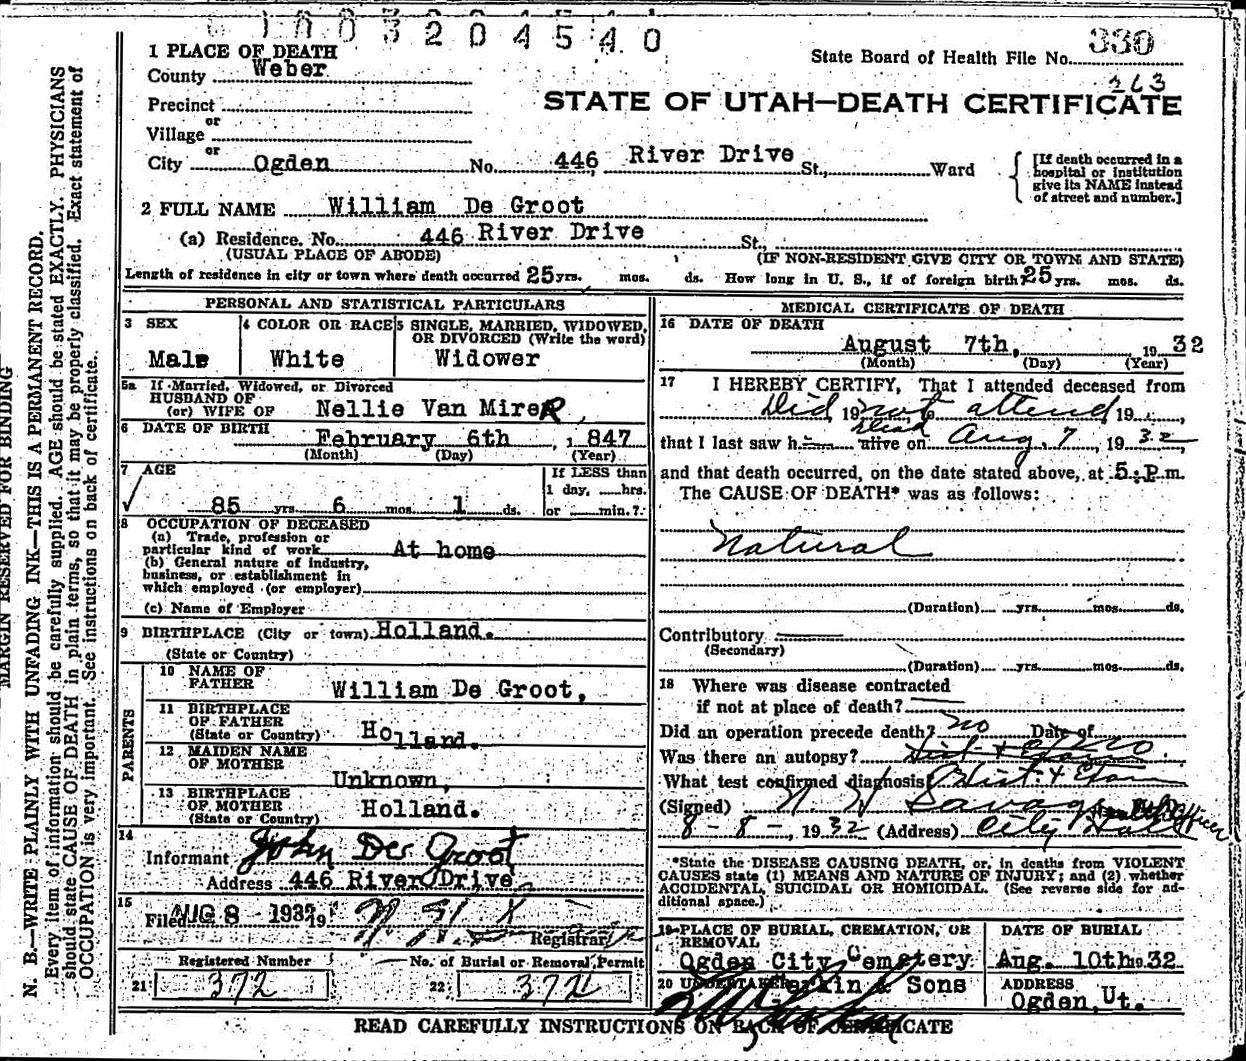 1003204540
1 PLACE OF DEATH
State Board of Health File No. 330
County Weber
263
Precinct
STATE OF UTAH—DEATH CERTIFICATE
or
Village
or
City Ogden No. 446 River Drive St., Ward
[If death occurred in a hospital or institution give its NAME instead of street and number.]
2 FULL NAME William De Groot
(a) Residence. No. 446 River Drive St.,
(USUAL PLACE OF ABODE) (IF NON-RESIDENT GIVE CITY OR TOWN AND STATE)
Length of residence in city or town where death occurred 25 yrs. mos. ds. How long in U. S., if of foreign birth? 25 yrs. mos. ds.
PERSONAL AND STATISTICAL PARTICULARS
3 SEX
Male
4 COLOR OR RACE
White
5 SINGLE, MARRIED, WIDOWED,
OR DIVORCED (Write the word)
Widower
5a If Married, Widowed, or Divorced
HUSBAND OF
(or) WIFE OF Nellie Van MireR
6 DATE OF BIRTH February 6th, 1847
(Month) (Day) (Year)
7 AGE
85 yrs. 6 mos. 1 ds.
If LESS than
1 day, hrs.
or min.?
8 OCCUPATION OF DECEASED
(a) Trade, profession or
particular kind of work At home
(b) General nature of industry,
business, or establishment in
which employed (or employer)
(c) Name of Employer
9 BIRTHPLACE (City or town) Holland.
(State or Country)
PARENTS
10 NAME OF
FATHER William De Groot,
11 BIRTHPLACE
OF FATHER
(State or Country) Holland.
12 MAIDEN NAME
OF MOTHER
Unknown,
13 BIRTHPLACE
OF MOTHER
(State or Country) Holland.
14
Informant John Des Groot
Address 446 River Drive
15
Filed AUG 8 1932 19
Registrar
Registered Number
21 372
No. of Burial or Removal Permit
22 372
MEDICAL CERTIFICATE OF DEATH
16 DATE OF DEATH
August 7th, 1932
(Month) (Day) (Year)
17 I HEREBY CERTIFY, That I attended deceased from
Did 19 not to attend, 19
that I last saw h dead alive on Aug. 7, 1932,
and that death occurred, on the date stated above, at 5:P.m.
The CAUSE OF DEATH* was as follows:
Natural
(Duration) yrs. mos. ds.
Contributory
(Secondary)
(Duration) yrs. mos. ds.
18 Where was disease contracted
if not at place of death?
Did an operation precede death? no Date of
Was there an autopsy? no
What test confirmed diagnosis? Hist. + Exam
(Signed) Savage Health Officer
8-8-, 1932 (Address) City Hall
*State the DISEASE CAUSING DEATH, or, in deaths from VIOLENT
CAUSES state (1) MEANS AND NATURE OF INJURY; and (2) whether
ACCIDENTAL, SUICIDAL OR HOMICIDAL. (See reverse side for ad-
ditional space.)
19 PLACE OF BURIAL, CREMATION, OR
REMOVAL
Ogden City Cemetery
DATE OF BURIAL
Aug. 10th 19 32
20 UNDERTAKER & Sons
ADDRESS
Ogden, Ut.
READ CAREFULLY INSTRUCTIONS ON BACK OF CERTIFICATE
MARGIN RESERVED FOR BINDING
N. B.—WRITE PLAINLY WITH UNFADING INK—THIS IS A PERMANENT RECORD.
Every item of information should be carefully supplied. AGE should be stated EXACTLY. PHYSICIANS
should state CAUSE OF DEATH in plain terms, so that it may be properly classified. Exact statement of
OCCUPATION is very important. See instructions on back of certificate.